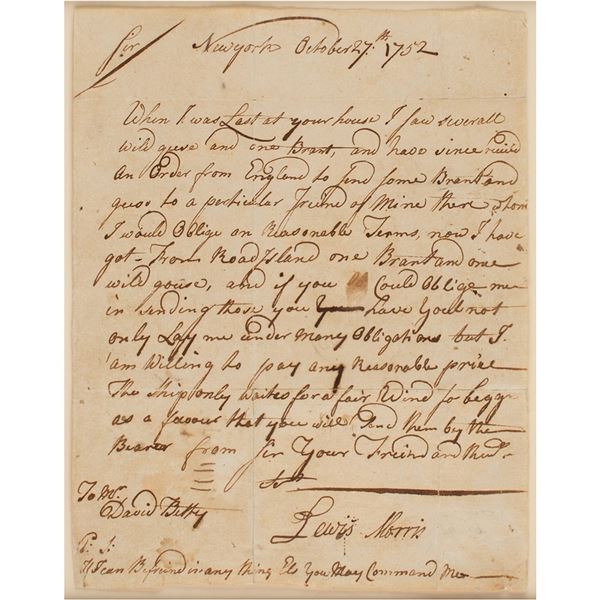 Sir Newyork October 27th. 1752
When I was Last at your house I saw severall
wild geese and one Brant, and have since
An Order from England to send some Brant and
geese to a particular friend of Mine there whom
I would Oblige on Reasonable Terms, now I have
got from Road Island one Brant and one
wild goose, and if you Could Oblige me
in sending those you have You'l not
only Lay me under Many Obligations but I
am Willing to pay any Reasonable price
The Ship only waites for a fair Wind so begg
as a favour that you will Send them by the
Bearer from Sir Your Friend and
To Mr.
David
Lewis Morris
P: S:
If I can Be friend in any thing Els You May Command Me